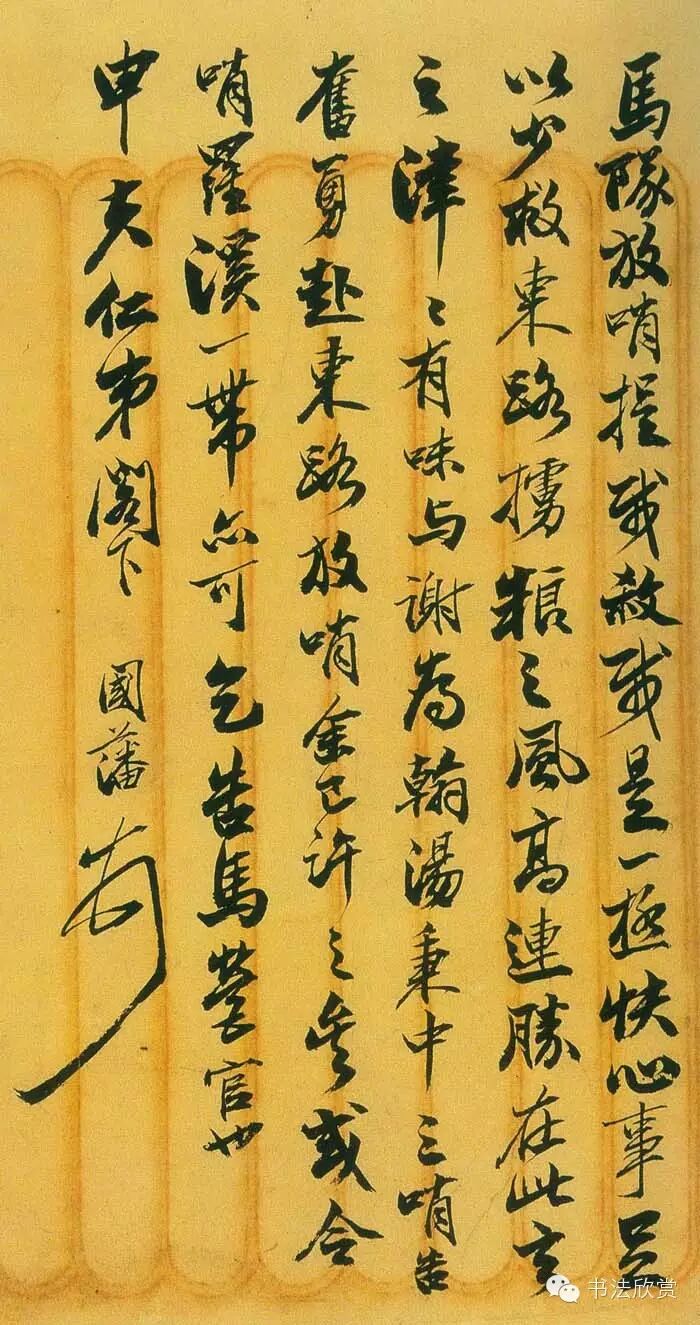 馬隊放哨捉我救我是一極快心事足
以少救東路擄粮之風高連勝在此言
之津〻有味与謝為翰湯秉中三哨告
奮勇赴東路放哨余已許之矣或令
哨羅溪一帶亦可乞告馬營官也
申夫仁弟閣下 國藩
书法欣赏